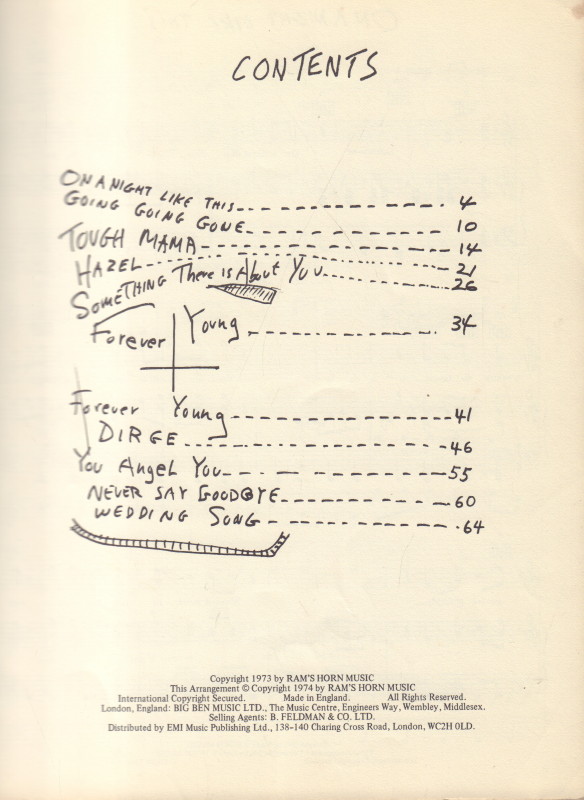 CONTENTS
ON A NIGHT LIKE THIS 4
GOING GOING GONE 10
TOUGH MAMA 14
HAZEL 21
SOMETHING There is About You 26
Forever Young 34
Forever Young 41
DIRGE 46
You Angel You 55
NEVER SAY GOODBYE 60
WEDDING SONG 64
Copyright 1973 by RAM'S HORN MUSIC
This Arrangement © Copyright 1974 by RAM'S HORN MUSIC
International Copyright Secured. Made in England. All Rights Reserved.
London, England: BIG BEN MUSIC LTD., The Music Centre, Engineers Way, Wembley, Middlesex.
Selling Agents: B. FELDMAN & CO. LTD.
Distributed by EMI Music Publishing Ltd., 138-140 Charing Cross Road, London, WC2H 0LD.